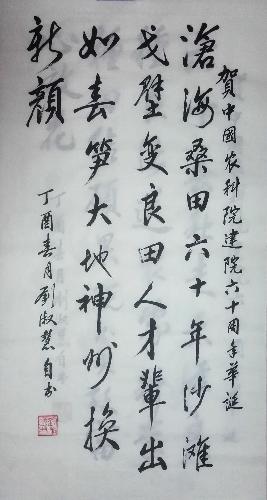 賀中國农科院建院六十周年華誕
滄海桑田六十年沙灘
戈壁变良田人才輩出
如春笋大地神州换
新顔
丁酉春月劉淑慧自书